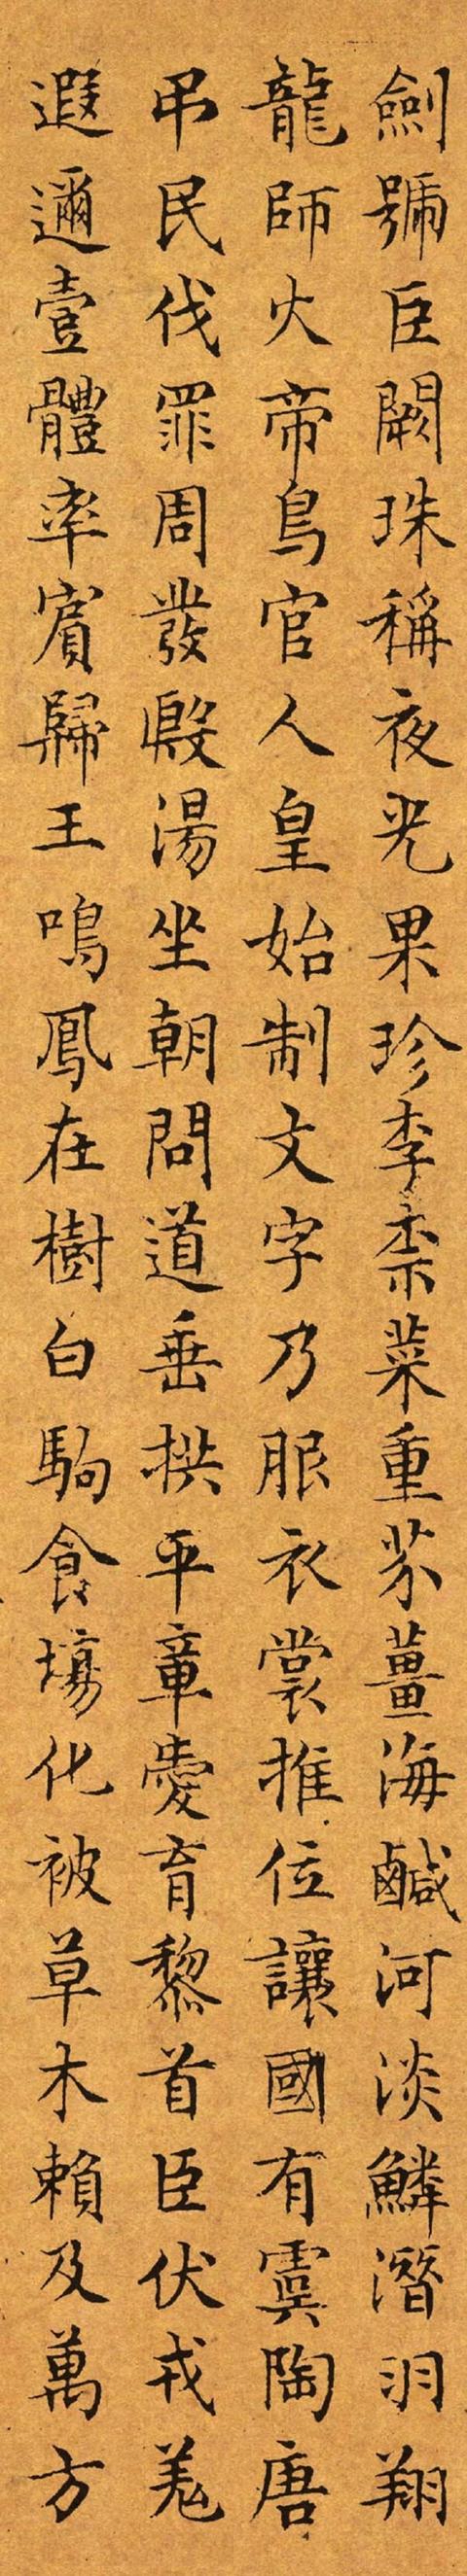 劍號巨闕珠稱夜光果珍李柰菜重芥薑海鹹河淡鱗潛羽翔
龍師火帝鳥官人皇始制文字乃服衣裳推位讓國有虞陶唐
弔民伐罪周發殷湯坐朝問道垂拱平章愛育黎首臣伏戎羌
遐邇壹體率賓歸王鳴鳳在樹白駒食場化被草木賴及萬方